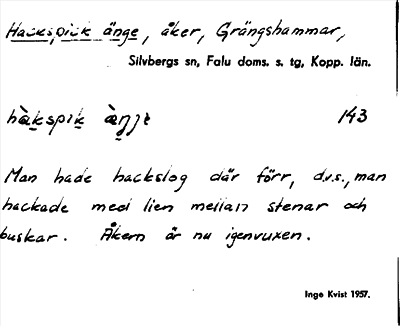 Hackspick änge, åker, Grängshammar,
Silvbergs sn, Falu doms. s. tg, Kopp. län.
143
Man hade hackslog där förr, dvs., man
hackade med lien mellan stenar och
buskar. Åkern är nu igenvuxen.
Inge Kvist 1957.